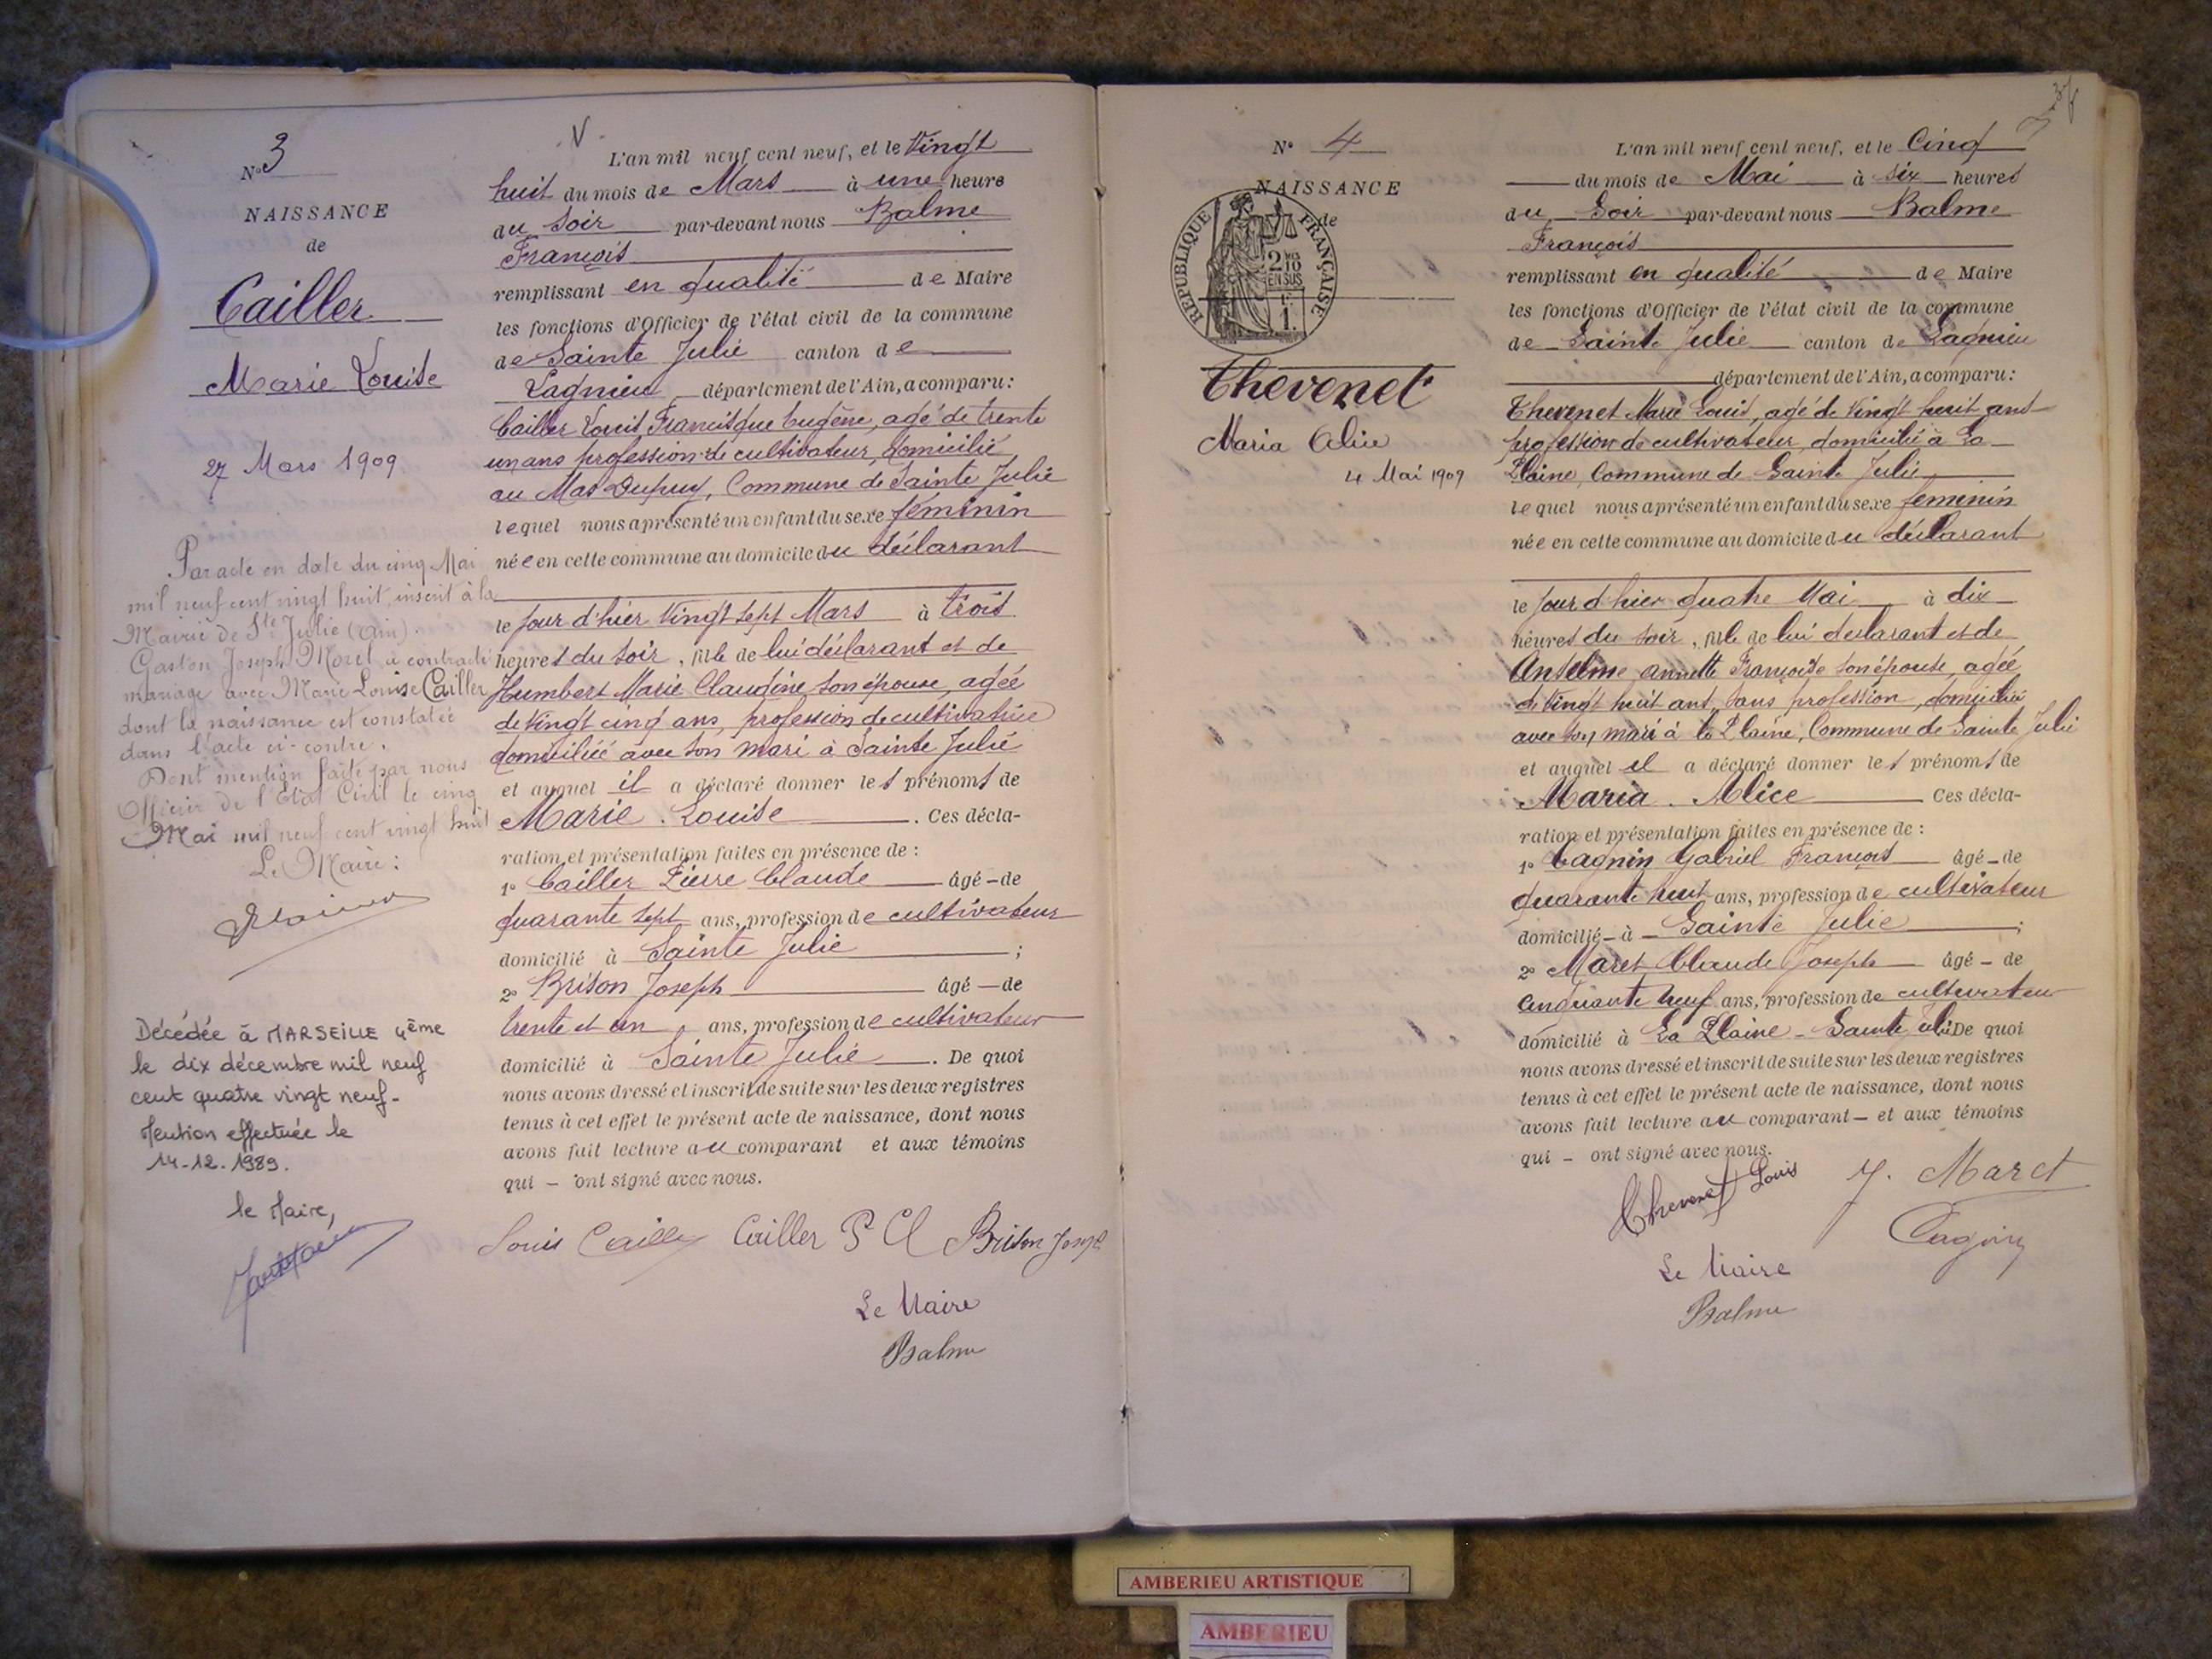 N° 3
NAISSANCE
de
Cailler
Marie Louise
27 Mars 1909
Par acte en date du cinq Mai
mil neuf cent vingt huit, inscrit à la
Mairie de Ste Julie (Ain).
Gaston Joseph Morel a contracté
mariage avec Marie Louise Cailler
dont la naissance est constatée
dans l'acte ci-contre.
Dont mention faite par nous
Officier de l'Etat Civil le cinq
Mai mil neuf cent vingt huit
Le Maire:
Décédée à MARSEILLE 4ème
le dix décembre mil neuf
cent quatre vingt neuf-
Mention effectuée le
14-12-1989.
le Maire,
V
L'an mil neuf cent neuf, et le Vingt
huit du mois de Mars à une heure
du Soir par-devant nous Balme
François
remplissant en qualité de Maire
les fonctions d'Officier de l'état civil de la commune
de Sainte Julie canton de
Lagnieu département de l'Ain, a comparu:
Cailler Louis Francisque Eugène, agé de trente
un ans profession de cultivateur, domicilié
au Mas Dupuy, Commune de Sainte Julie
lequel nous a présenté un enfant du sexe féminin
née en cette commune au domicile du déclarant
le jour d'hier Vingt sept Mars à trois
heures du soir, fille de lui déclarant et de
Humbert Marie Claudine son épouse, agée
de vingt cinq ans, profession de cultivatrice
domiciliée avec son mari à Sainte Julie
et auquel il a déclaré donner les prénoms de
Marie. Louise. Ces décla-
ration et présentation faites en présence de :
1° Cailler Pierre Claude âgé de
quarante sept ans, profession de cultivateur
domicilié à Sainte Julie ;
2° Brison Joseph âgé de
trente et un ans, profession de cultivateur
domicilié à Sainte Julie. De quoi
nous avons dressé et inscrit de suite sur les deux registres
tenus à cet effet le présent acte de naissance, dont nous
avons fait lecture au comparant et aux témoins
qui - ont signé avec nous.
Louis Cailler Cailler P Cl Brison Joseph
Le Maire
Balme
N° 4
NAISSANCE
de
REPUBLIQUE FRANÇAISE
2/10
EN SUS
1.
Thevenet
Maria Alice
4 Mai 1909
L'an mil neuf cent neuf, et le Cinq
du mois de Mai à six heures
du Soir par-devant nous Balme
François
remplissant en qualité de Maire
les fonctions d'Officier de l'état civil de la commune
de Sainte Julie canton de Lagnieu
département de l'Ain, a comparu:
Thevenet Marie Louis, agé de vingt huit ans
profession de cultivateur, domicilié à La
Plaine, Commune de Sainte Julie
lequel nous a présenté un enfant du sexe feminin
née en cette commune au domicile du déclarant
le jour d'hier quatre Mai à dix
heures du soir, fille de lui declarant et de
Anselme annette Françoise son épouse, agée
de vingt huit ans, sans profession, domiciliée
avec son mari à la Plaine, Commune de Sainte Julie
et auquel il a déclaré donner les prénoms de
Maria. Alice Ces décla-
ration et présentation faites en présence de :
1° Cagnin Gabriel François âgé de
quarante huit ans, profession de cultivateur
domicilié à Sainte Julie ;
2° Maret Claude Joseph âgé de
cinquante neuf ans, profession de cultivateur
domicilié à La Plaine - Sainte Julie De quoi
nous avons dressé et inscrit de suite sur les deux registres
tenus à cet effet le présent acte de naissance, dont nous
avons fait lecture au comparant - et aux témoins
qui - ont signé avec nous.
Thevenet Louis J. Maret
Cagnin
Le Maire
Balme
AMBERIEU ARTISTIQUE
AMBERIEU